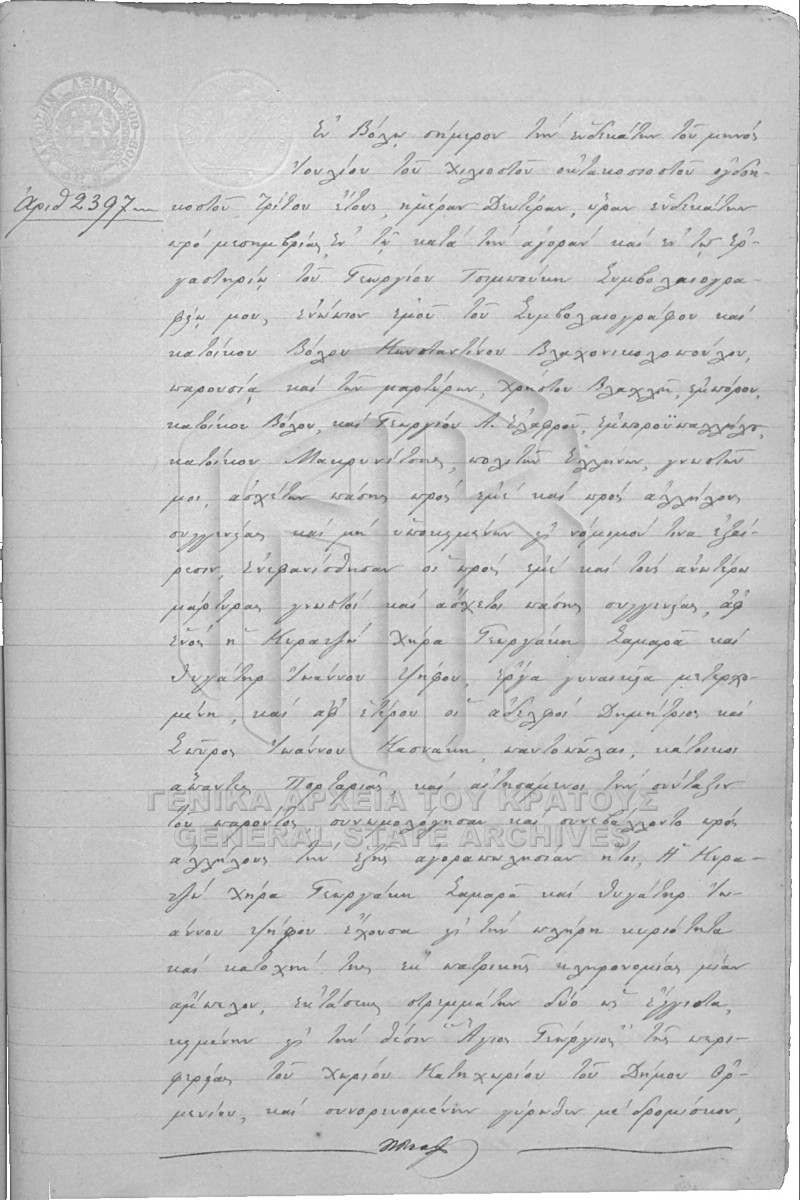 Ἐν Βόλῳ σήμερον τὴν ἑνδεκάτην τοῦ μηνὸς
Ἰουλίου τοῦ χιλιοστοῦ ὀκτακοσιοστοῦ ὀγδοη-
Ἀριθ 2397
κοστοῦ τρίτου ἔτους, ἡμέραν Δευτέραν, ὥραν ἑνδεκάτην
πρὸ μεσημβρίας, ἐν τῇ κατὰ τὴν ἀγορὰν καὶ ἐν τῷ ἐρ-
γαστηρίῳ τοῦ Γεωργίου Τσιμπούκη Συμβολαιογρα-
φείῳ μου, ἐνώπιον ἐμοῦ τοῦ Συμβολαιογράφου καὶ
κατοίκου Βόλου Κωνσταντίνου Βλαχονικολοπούλου,
παρουσίᾳ καὶ τῶν μαρτύρων, Χρήστου Βλαχλῆ, ἐμπόρου,
κατοίκου Βόλου, καὶ Γεωργίου Α. Ἐλαφροῦ, ἐμποροϋπαλλήλου,
κατοίκου Μακρυνίτσης, πολιτῶν Ἑλλήνων, γνωστῶν
μοι, ἀσχέτων πάσης πρὸς ἐμὲ καὶ πρὸς ἀλλήλους
συγγενείας καὶ μὴ ὑποκειμένων εἰς νόμιμόν τινα ἐξαί-
ρεσιν, ἐνεφανίσθησαν οἱ πρὸς ἐμὲ καὶ τοὺς ἀνωτέρω
μάρτυρας γνωστοὶ καὶ ἄσχετοι πάσης συγγενείας, ἀφ'
ἑνὸς ἡ Κυρατζὼ χήρα Γεωργάκη Σαμαρᾶ καὶ
θυγάτηρ Ἰωάννου Ψήφου, ἔργα γυναικεῖα μετερχο-
μένη, καὶ ἀφ' ἑτέρου οἱ ἀδελφοὶ Δημήτριος καὶ
Σπῦρος Ἰωάννου Κασνάκη, παντοπῶλαι, κάτοικοι
ἅπαντες Πορταριᾶς, καὶ αἰτησάμενοι τὴν σύνταξιν
τοῦ παρόντος συνωμολόγησαν καὶ συνεβάλλοντο πρὸς
ἀλλήλους τὴν ἑξῆς ἀγοραπωλησίαν ἤτοι, Ἡ Κυρα-
τζὼ χήρα Γεωργάκη Σαμαρᾶ καὶ θυγάτηρ Ἰω-
άννου Ψήφου ἔχουσα εἰς τὴν πλήρη κυριότητα
καὶ κατοχήν της ἐκ πατρικῆς κληρονομίας μίαν
ἄμπελον, ἐκτάσεως στρεμμάτων δύο ὡς ἔγγιστα,
κειμένην εἰς τὴν θέσιν "Ἅγιος Γεώργιος" τῆς περι-
φερείας τοῦ χωρίου Κατηχωρίου τοῦ Δήμου Ὀρ-
μενίου, καὶ συνορευομένην γύρωθεν μὲ δρομίσκον,
ΓΕΝΙΚΑ ΑΡΧΕΙΑ ΤΟΥ ΚΡΑΤΟΥΣ
GENERAL STATE ARCHIVES